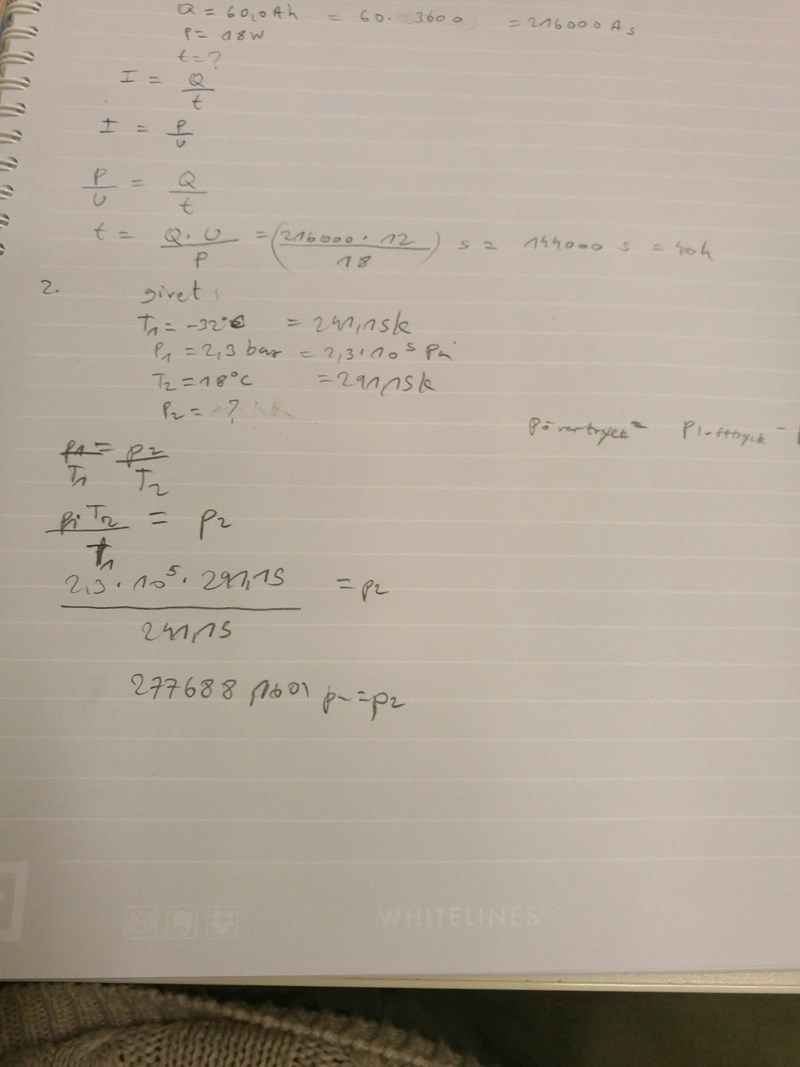 Q = 60,0 Ah = 60 · 3600 = 216000 As
P = 18W
t = ?
I = Q/t
I = P/U
P/U = Q/t
t = Q·U/P = (216000 · 12/18) s = 144000 s = 40h
2. givet
T1 = -32°C = 241,15k
P1 = 2,3 bar = 2,3·10^5 Pa
T2 = 18°C = 291,15k
P2 = ?
Pövertryck = Plufttryck -
p1/T1 = p2/T2
p1 T2/T1 = p2
2,3 · 10^5 · 291,15/241,15 = p2
277688,1601 pa = p2
WHITELINES